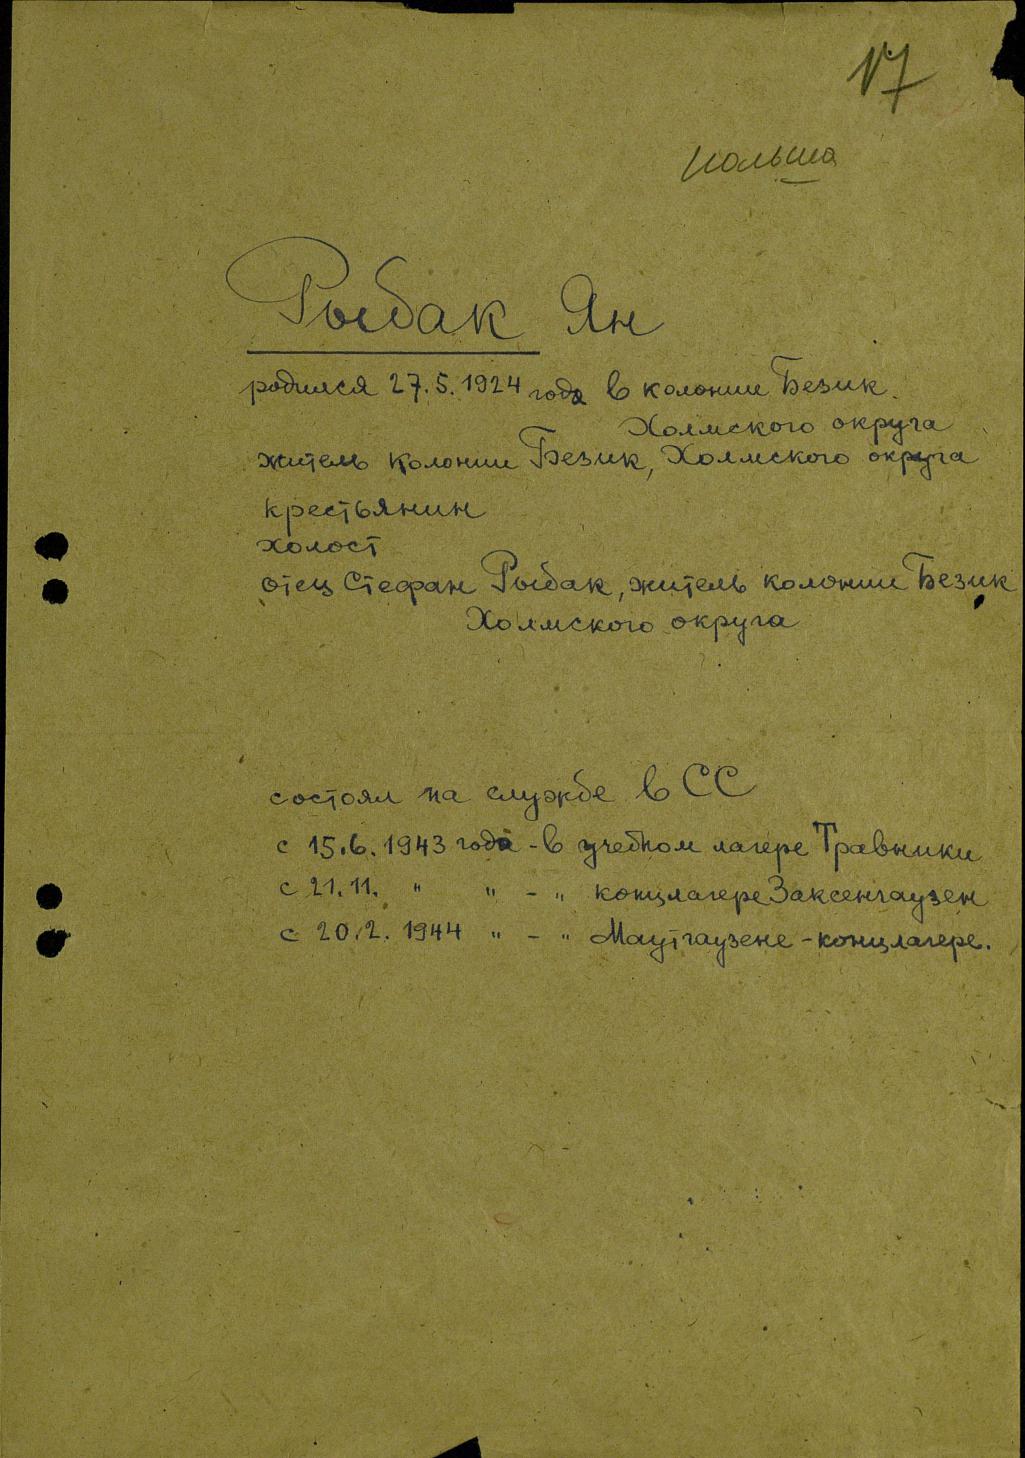 17
Польша
Рыбак Ян
родился 27.5.1924 года в колонии Безик
Холмского округа
житель колонии Безик, Холмского округа
крестьянин
холост
отец Стефан Рыбак, житель колонии Безик
Холмского округа
состоял на службе в СС
с 15.6.1943 года - в учебном лагере Травники
с 21.11. " " - " концлагере Заксенгаузен
с 20.2.1944 " - " Маутгаузене - концлагере.